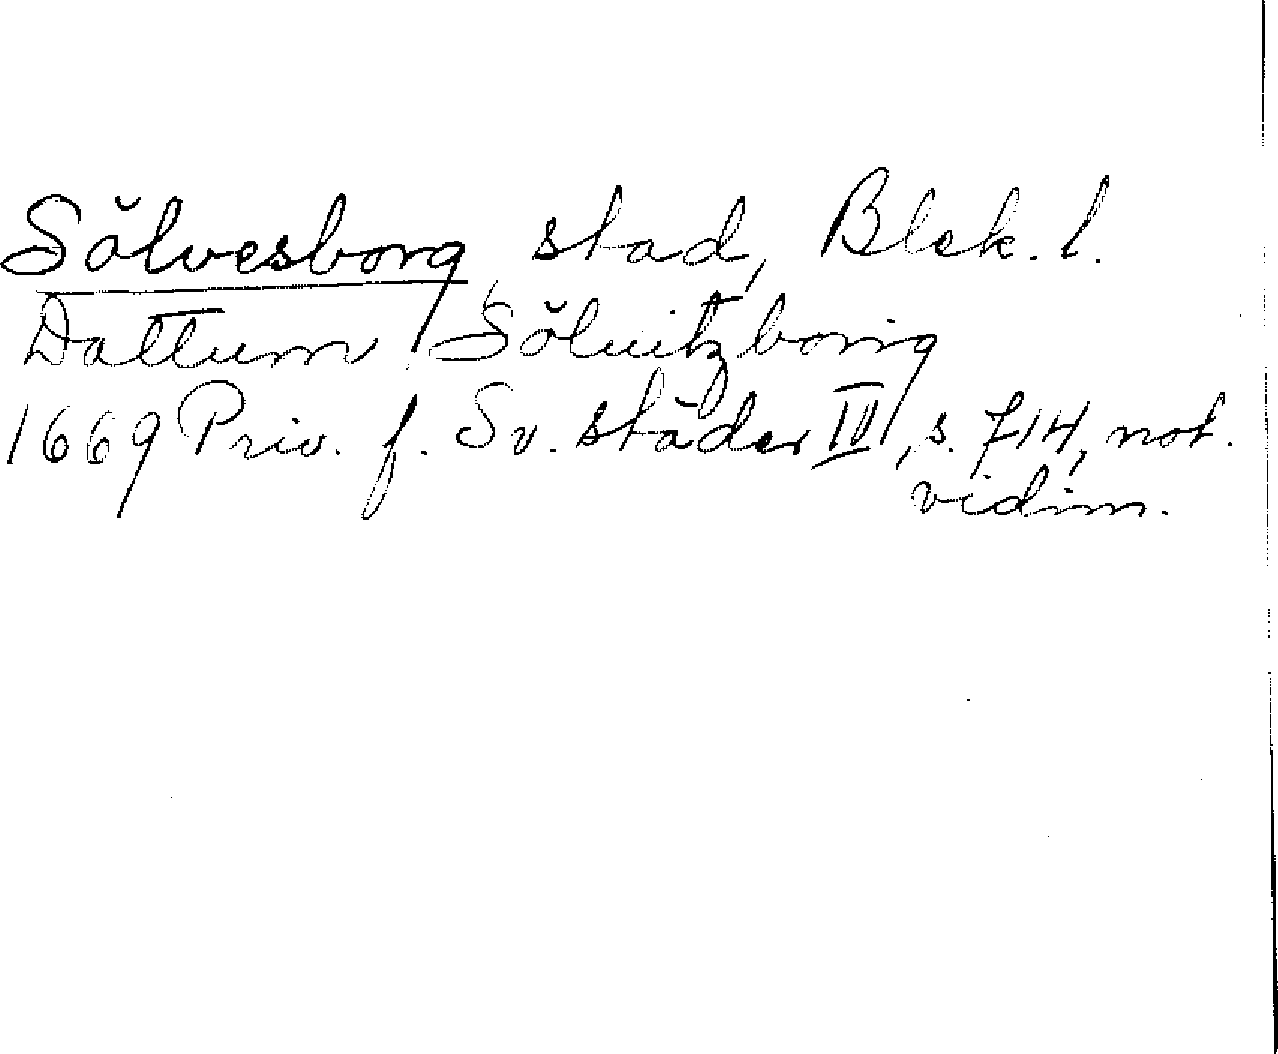 Sölvesborg, stad, Blek. l.
Dattum Söluitzborig
1669 Priv. f. Sv. städer III, s. 714, not.
vidim.